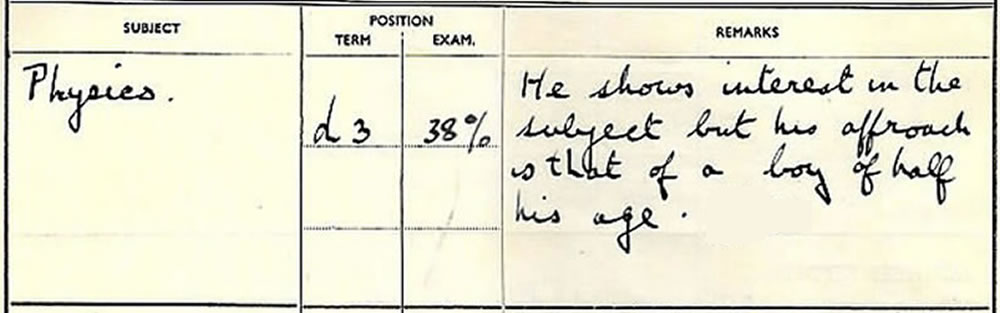 SUBJECT
POSITION
TERM EXAM.
REMARKS
Physics.
d 3 38%
He shows interest in the
subject but his approach
is that of a boy of half
his age.